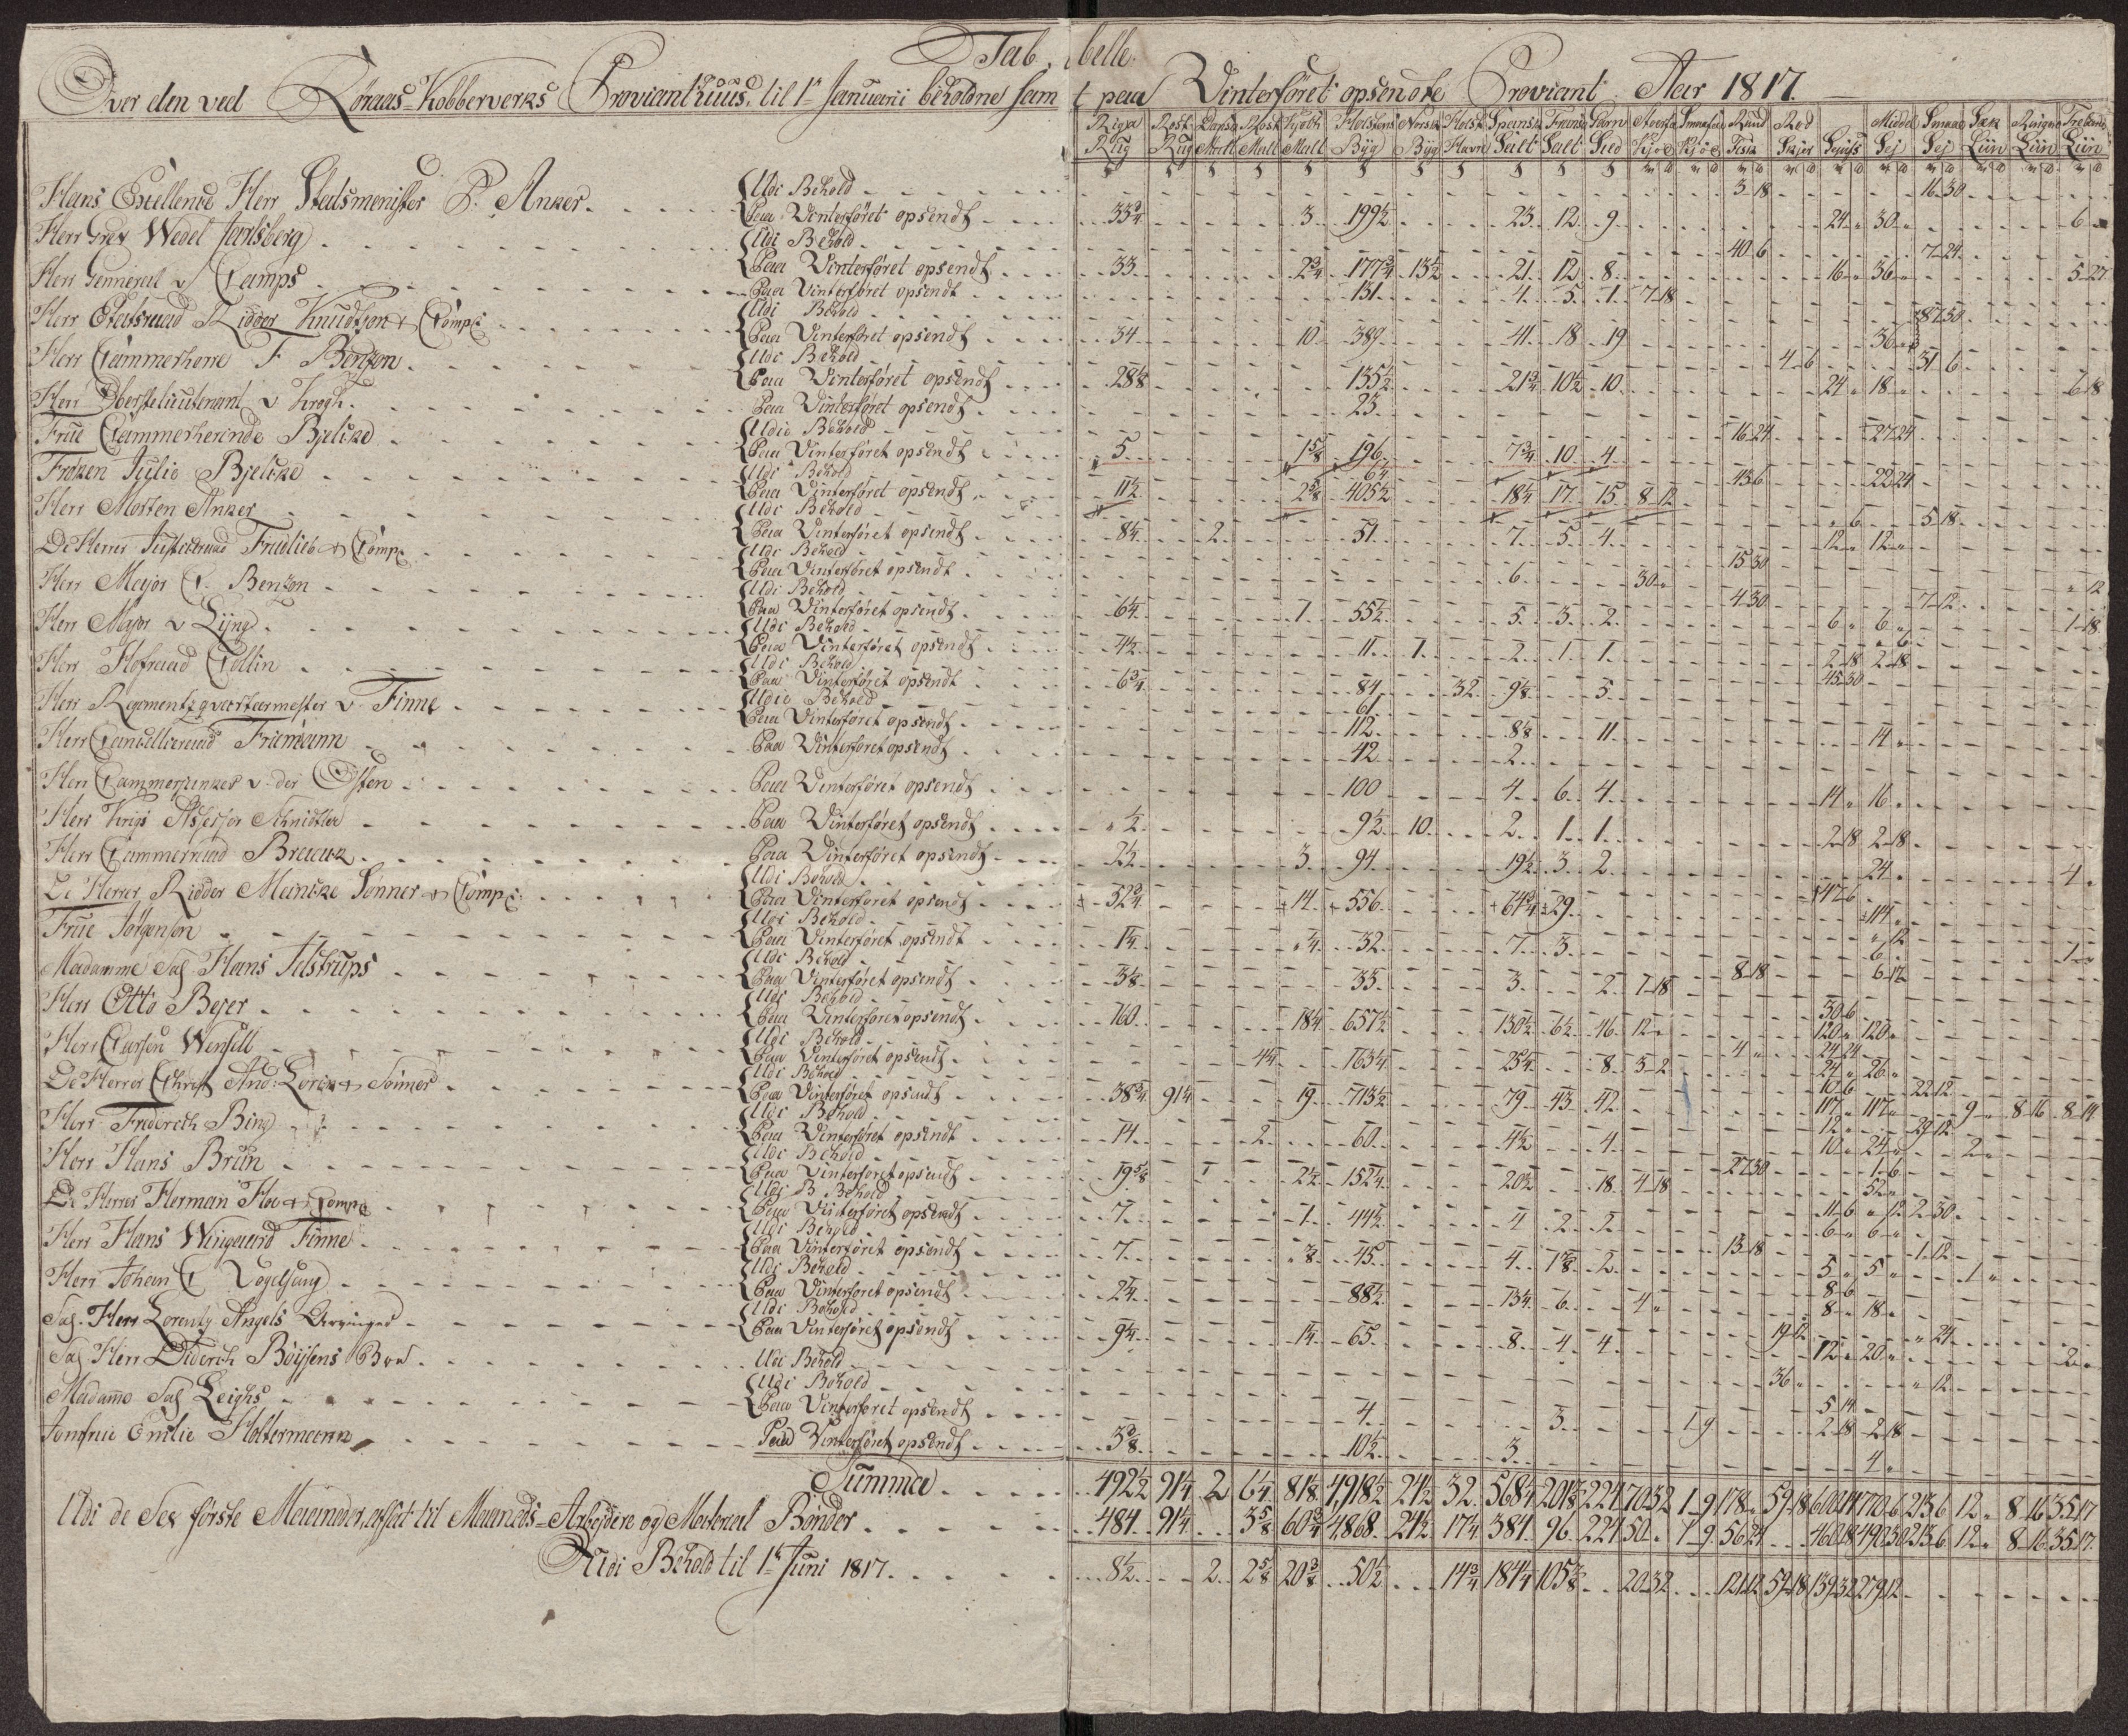 Tabelle
Over den ved Röraas-Kobberverks Provianthuus, til 1r Januarii beholdne samt paa Vinterföret opsendte Proviant Aar 1817.
Riga Rug Rost Rug Dansk Malt Rost Malt Kjøbh Malt Holstens Byg Norsk Byg Holst Havre Spansk Salt Fransk Salt Garn Sild Kjöd Kjöd Rund Fisk Rød Skjær Middel Sej Smaae Sej Liin Liin Liin
Hans Exellence Herr Statsmenister P. Anker {Udi Behold 3 18 16 30
Paa Vinterföret opsendt 33 3/4 3 199 1/2 23 12 9 24 " 30 " 6 "
Herr Grev Wedel Jarlsberg {Udi Behold 40 6 7 24
Paa Vinterföret opsendt 33 2 3/4 177 3/4 13 1/2 21 12 8 16 " 36 " 5 27
Herr Genneral v Camps Paa Vinterföret opsendt 131 4 5 1 7 18
Herr Etatsraad Ridder Knudtzon & Comp {Udi Behold 87 30
Paa Vinterföret opsendt 34 10 389 41 18 19 36 "
Herr Cammerherre F Benzon {Udi Behold 4 6 31 6
Paa Vinterföret opsendt 28 1/8 135 1/2 21 3/4 10 1/2 10 24 " 18 " 6 18
Herr Oberstelieutenant v Krogh Paa Vinterföret opsendt 23
Frue Cammerherinde Bjelke {Udie Behold 16 24 27 24
Paa Vinterföret opsendt 5 1 5/8 196 7 3/4 10 4
Fröken Julie Bjelke {Udi Behold 6 1/4 43 6 22 24
Paa Vinterföret opsendt 11 1/2 2 3/8 405 1/2 18 1/4 17 15 8 12
Herr Morten Anker {Udi Behold " 6 5 18
Paa Vinterföret opsendt 8 1/4 2 51 7 5 4 12 " 12 "
De Herrer Justitsraad Friedlieb & Comp {Udi Behold 15 30
Paa Vinterföret opsendt 6 30 " " 12
Herr Major C. Benzon {Udi Behold 4 30 7 12
Paa Vinterföret opsendt 6 1/4 1 55 1/2 5 3 2 6 " 6 " 1 18
Herr Major v Lÿng {Udi Behold " 6
Paa Vinterföret opsendt 4 1/2 11 1 2 1 1 2 18 2 18
Herr Hofraad Collin {Udi Behold 45 30
Paa Vinterföret opsendt 6 3/4 84 32 9 1/8 5
Herr Regimentzqvarteermester v. Finne {Udie Behold 61
Paa Vinterföret opsendt 112 8 1/8 11 14 "
Herr Cancelliraad Friimann Paa Vinterföret opsendt 42 2
Herr Cammerjunker v. der Osten Paa Vinterföret opsendt 100 4 6 4 14 " 16 "
Herr Krigs Assessor Schnidtler Paa Vinterföret opsendt " 1/2 9 1/2 10 2 1 1 2 18 2 18
Herr Cammerraad Paa Vinterföret opsendt 2 1/2 3 94 19 1/2 3 2 24 " 4 "
De Herrer Ridder Meincke Sönner & Comp {Udi Behold 47 6
Paa Vinterföret opsendt 32 3/4 14 556 64 3/4 29 114 "
Frue Jörgenson {Udi Behold " 12
Paa Vinterföret opsendt 1 1/4 " 3/4 32 7 3 6 " 1 "
Madamme Sal Hans Jelstrups {Udi Behold 8 18 6 12
Paa Vinterföret opsendt 3 1/8 33 3 2 7 18
Herr Otto Bejer {Udi Behold 30 6
Paa Vinterföret opsendt 160 18 1/4 657 1/2 130 1/2 6 1/2 46 12 " 120 " 120 "
Herr Carsten Wensell {Udi Behold 4 " 24 24
Paa Vinterföret opsendt 4 1/4 163 1/4 25 1/4 8 5 2 24 " 26 "
De Herrer Christ And: Lorck & Sönner {Udi Behold 10 6 22 12
Paa Vinterföret opsendt 38 3/4 91 1/4 19 713 1/2 79 43 42 117 " 117 " 9 " 8 16 8 14
Herr Friderich Bing {Udi Behold 12 " 29 12
Paa Vinterföret opsendt 14 2 60 4 1/2 4 10 " 24 " 2 "
Herr Hans Brun {Udi Behold 27 30 1 6
Paa Vinterföret opsendt 19 5/8 2 1/2 152 1/4 20 1/2 18 4 18 52 "
De Herrer Herman Hoe & Comp {Udi B Behold 11 6 " 12 2 30
Paa Vinterföret opsendt 7 1 44 1/2 4 2 2 6 " 6 "
Herr Hans Wingaard Finne {Udi Behold 13 18 1 12
Paa Vinterföret opsendt 7 " 3/8 45 4 1 7/8 2 5 " 5 " 1 "
Herr Johan C Vogelsang {Udi Behold 8 6
Paa Vinterföret opsendt 2 1/4 88 1/2 13 1/4 6 4 " 8 " 18 "
Sal. Herr Lorentz Angels Arvinger {Udi Behold 19 12 " 24
Paa Vinterföret opsendt 9 1/4 1 1/4 65 8 4 4 12 " 20 " 2 "
Sal Herr Diderch Boÿsens Boe Udi Behold 36 " " 12
Madame Sal Leighs {Udi Behold 5 14
Paa Vinterföret opsendt 4 3 1 9 2 18 2 18
Jomfrue Emilie Holtermann Paa Vinterföret opsendt 3 3/8 10 1/2 3 4 "
Summa 492 1/2 91 1/4 2 6 1/4 81 1/8 4,918 1/2 24 1/2 32 568 1/4 201 3/8 224 70 32 1 9 178 " 59 18 600 14 770 6 213 6 12 " 8 16 35 17
Udi de Sex förste Maaneder, afsat til Maaneds-Arbejdere og Material Bönder 484 91 1/4 3 5/8 60 3/4 4,868 24 1/2 17 1/4 384 96 224 50 " 1 9 56 24 460 18 490 30 213 6 12 " 8 16 35 17
Udi Behold til 1r Juni 1817 8 1/2 2 2 5/8 20 3/8 50 1/2 14 3/4 184 1/4 105 3/8 20 32 121 12 59 18 139 32 279 12